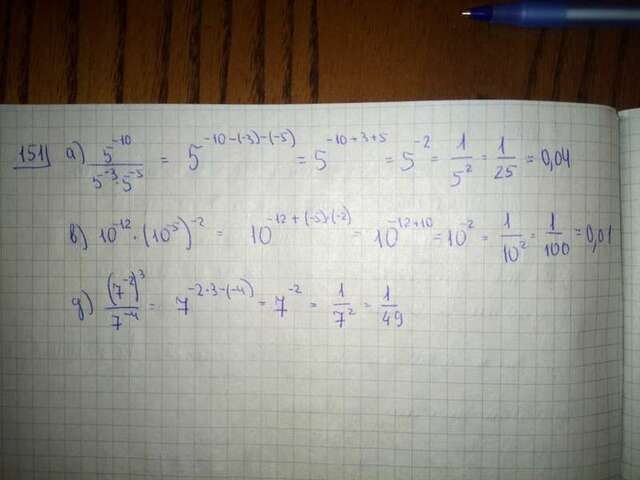 151 а) 5^-10 / (5^-3 · 5^-5) = 5^(-10-(-3)-(-5)) = 5^(-10+3+5) = 5^-2 = 1/5^2 = 1/25 = 0,04
в) 10^-12 · (10^-5)^-2 = 10^(-12+(-5)·(-2)) = 10^(-12+10) = 10^-2 = 1/10^2 = 1/100 = 0,01
д) (7^-2)^3 / 7^-4 = 7^(-2·3-(-4)) = 7^-2 = 1/7^2 = 1/49